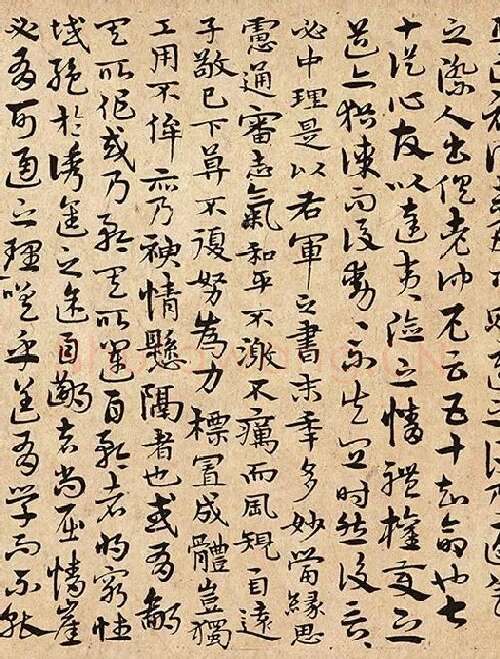 之際人書俱老仲尼云五十知命也七
十從心故以達夷險之情體權變之
道亦猶謀而後動動不失宜時然後言言
必中理是以右軍之書末年多妙當緣思
慮通審志氣和平不激不厲而風規自遠
子敬已下莫不鼓努為力標置成體豈獨
工用不侔亦乃神情懸隔者也或有鄙
其所作或乃矜其所運自矜者將窮性
域絕於誘進之途自鄙者尚屈情崖
必有可通之理嗟乎蓋有學而不能